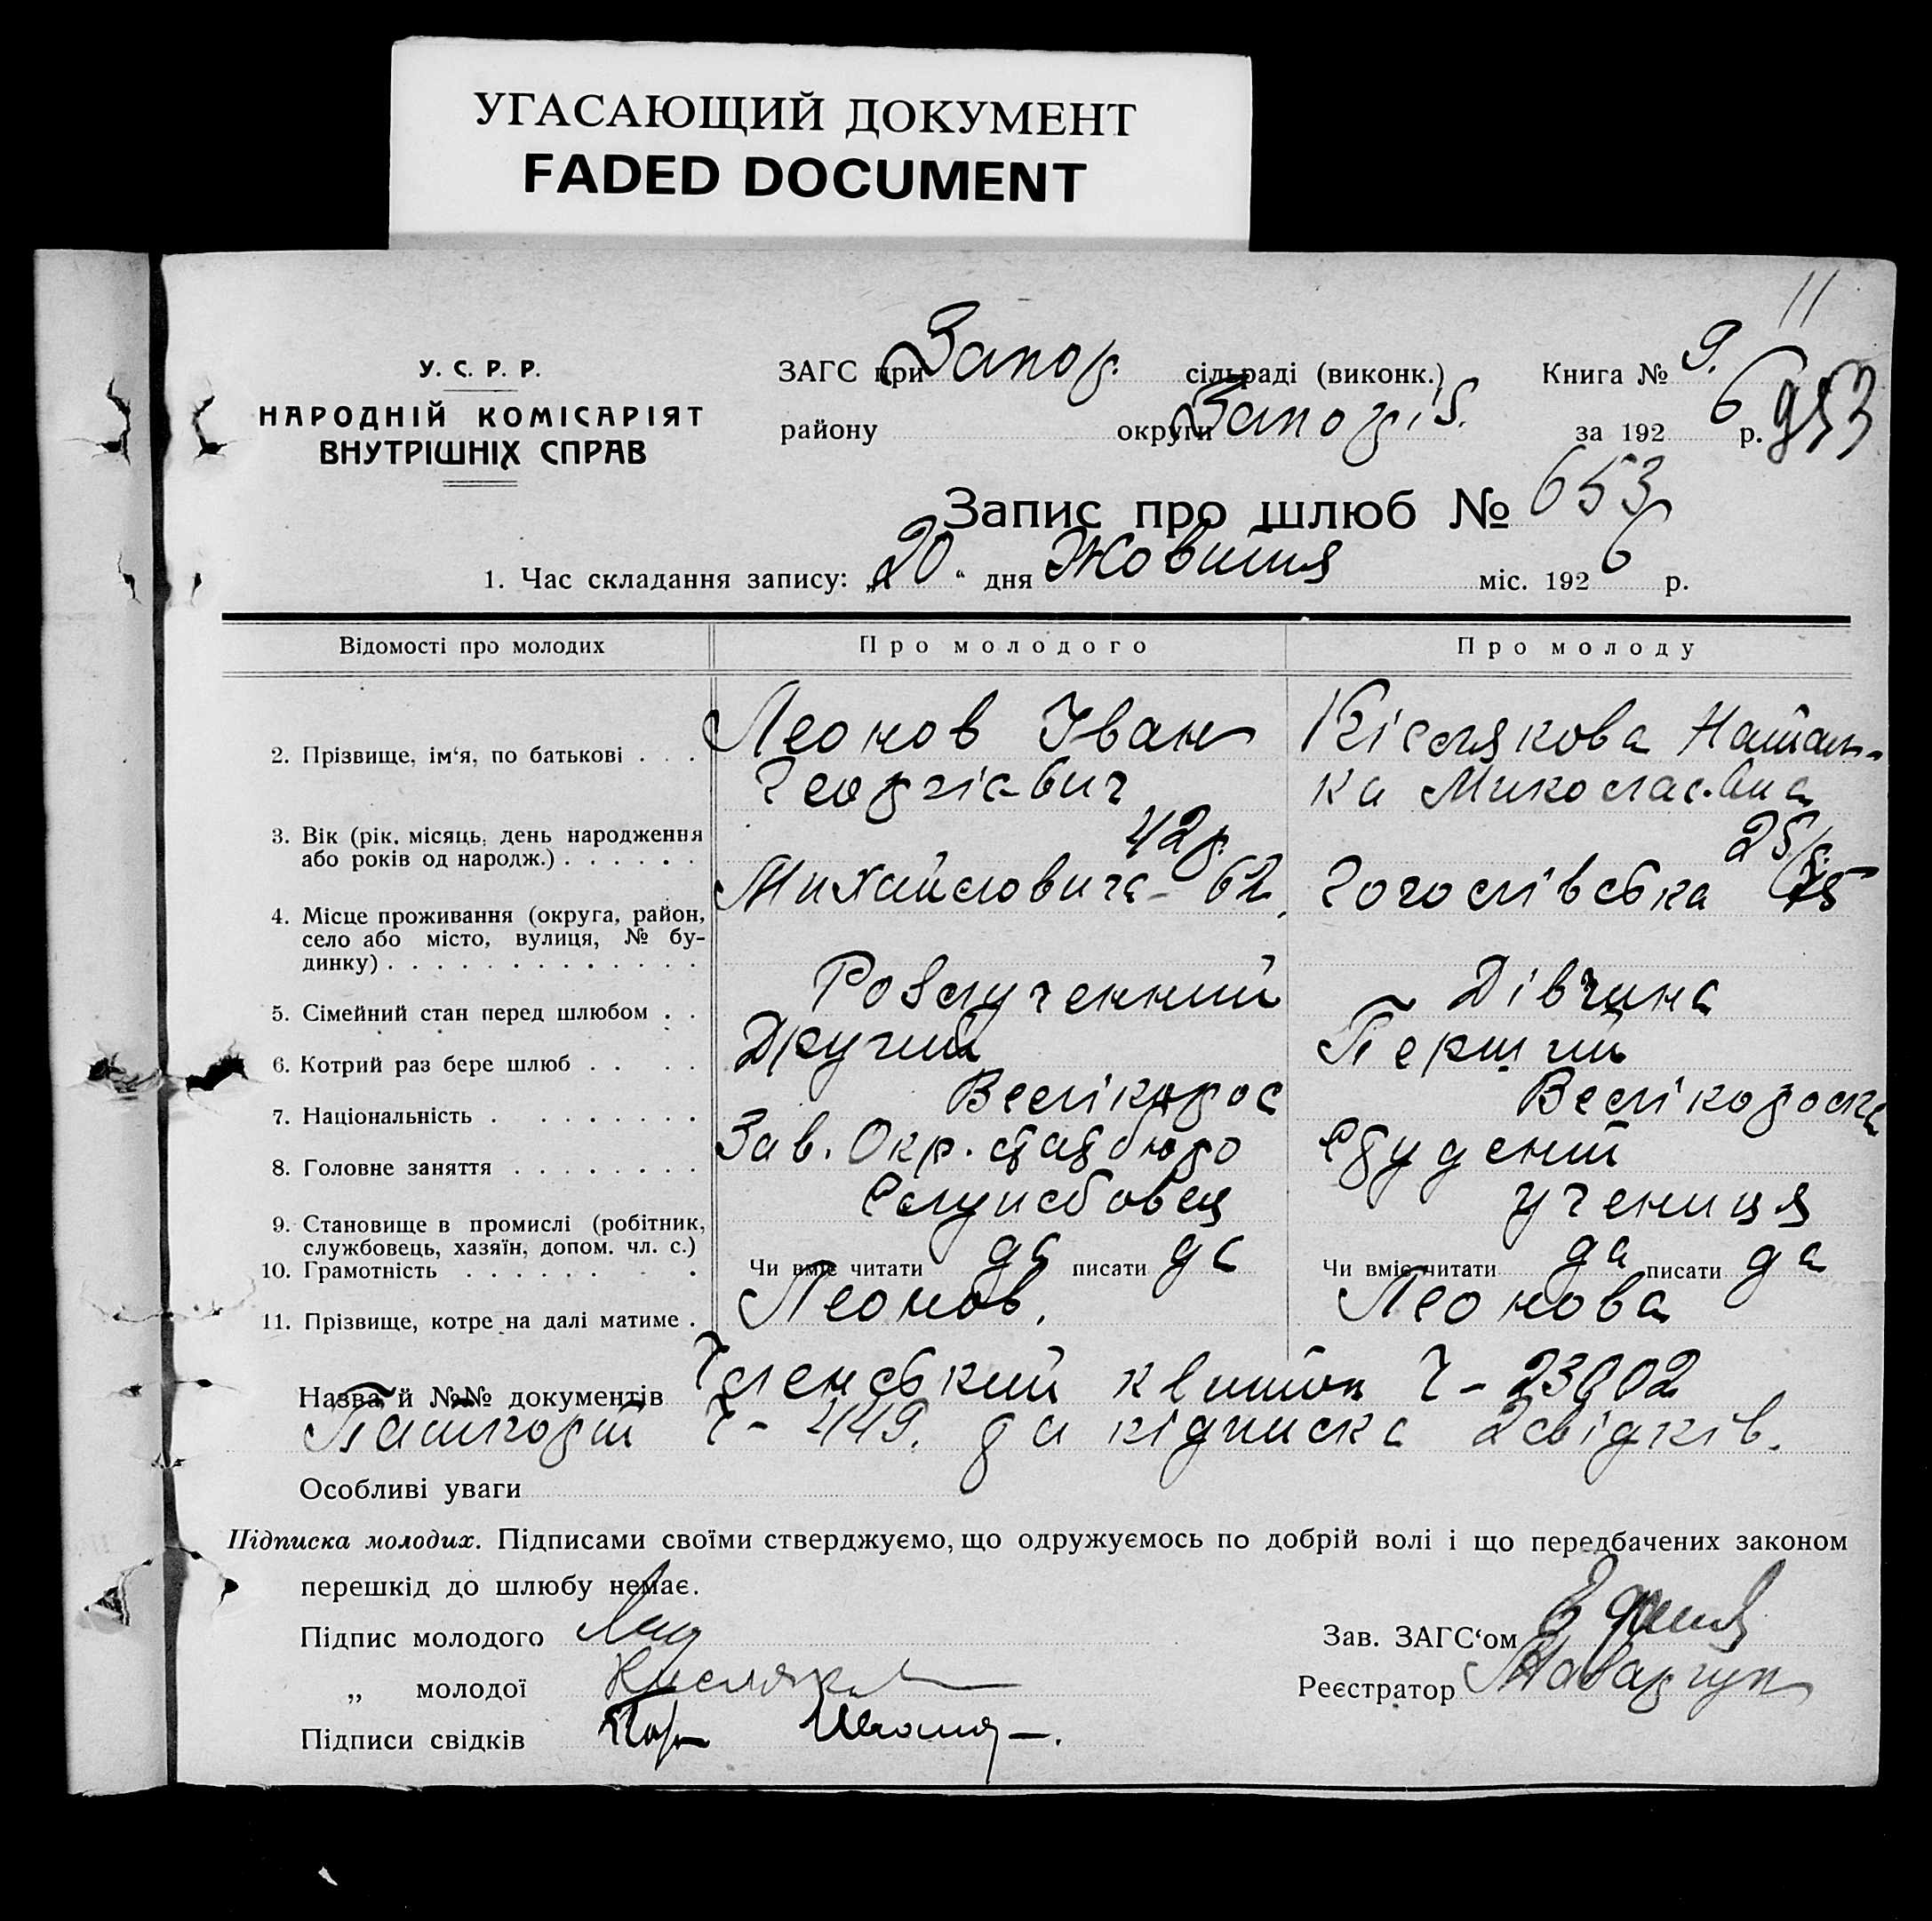 УГАСАЮЩИЙ ДОКУМЕНТ
FADED DOCUMENT
11
У. С. Р. Р.
НАРОДНІЙ КОМІСАРІЯТ
ВНУТРІШНІХ СПРАВ
ЗАГС при Запор. сільраді (виконк.) Книга № 9.
району округи Запоріз. за 1926 р. 953
Запис про шлюб № 653
1. Час складання запису: „20" дня Жовтня міс. 1926 р.
Відомості про молодих Про молодого Про молоду
2. Прізвище, ім‘я, по батькові . . . Леонов Іван Кіслякова Наталь-
Георгієвич ка Миколаєвна
3. Вік (рік, місяць, день народження 42р. 25р.
або років од народж.) . . . . . .
4. Місце проживання (округа, район, Михайловича - 62. Гоголівська 75
село або місто, вулиця, № бу-
динку) . . . . . . . . . . . . .
5. Сімейний стан перед шлюбом . . Розлученний Дівчина
6. Котрий раз бере шлюб . . . . Другий Перший
7. Національність . . . . . . . . Велікорос Велікороска
8. Головне заняття . . . . . . . . Зав. Окр. статбюро Студент
9. Становище в промислі (робітник, Службовец учениця
службовець, хазяїн, допом. чл. с.)
10. Грамотність . . . . . . . . Чи вміє читати да писати да Чи вміє читати да писати да
11. Прізвище, котре на далі матиме . Леонов. Леонова
Назва й №№ документів Членський квиток Ч - 23002
Пашпорт Ч - 449. да підписка 2 свідків.
Особливі уваги
Підписка молодих. Підписами своїми стверджуємо, що одружуємось по добрій волі і що передбачених законом
перешкід до шлюбу немає.
Підпис молодого Зав. ЗАГС‘ом
„ молодої Кислякова Реєстратор
Підписи свідків